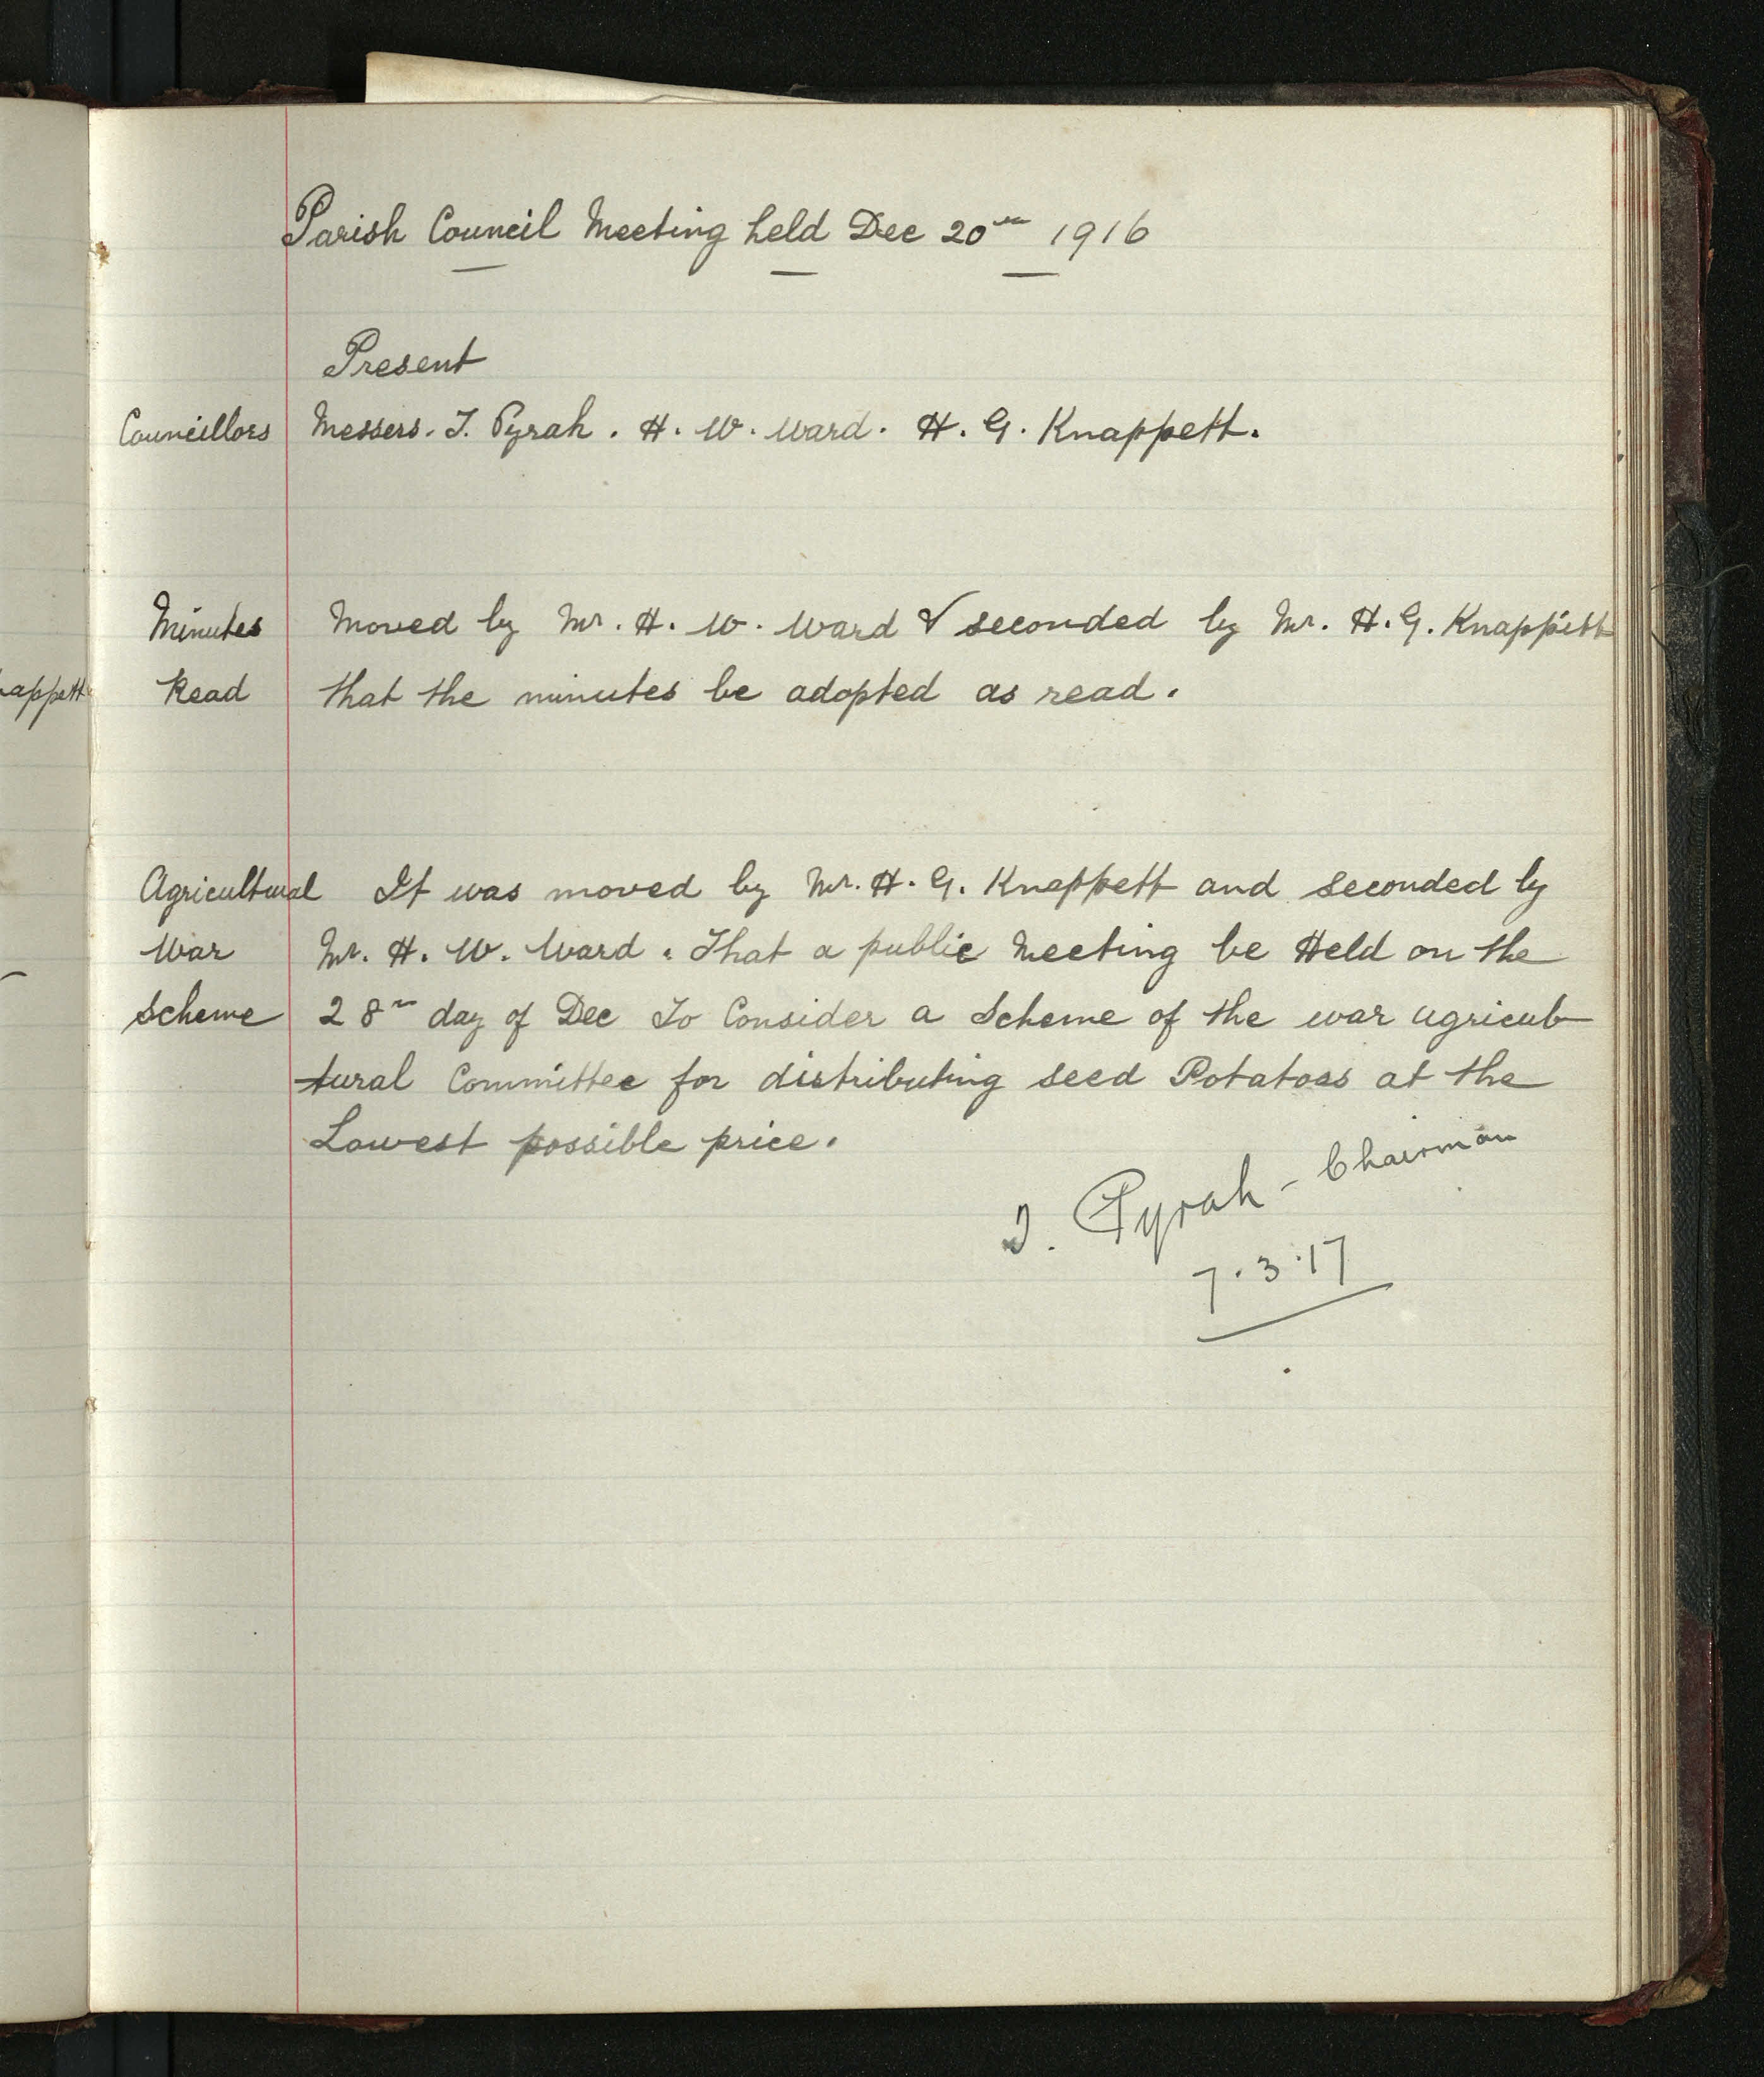 Parish Council Meeting held Dec 20th 1916
Present
Councillors Messers. T. Pyrah. H. W. Ward. H. G. Knappett.
Minutes Moved by Mr. H. W. Ward & seconded by Mr. H. G. Knappett
appett Read that the minutes be adopted as read.
Agricultural It was moved by Mr. H. G. Knappett and seconded by
War Mr. H. W. Ward. That a public Meeting be Held on the
Scheme 28th day of Dec To Consider a Scheme of the war agricul-
tural Committee for distributing seed Potatoes at the
Lowest possible price.
T. Pyrah - Chairman
7.3.17